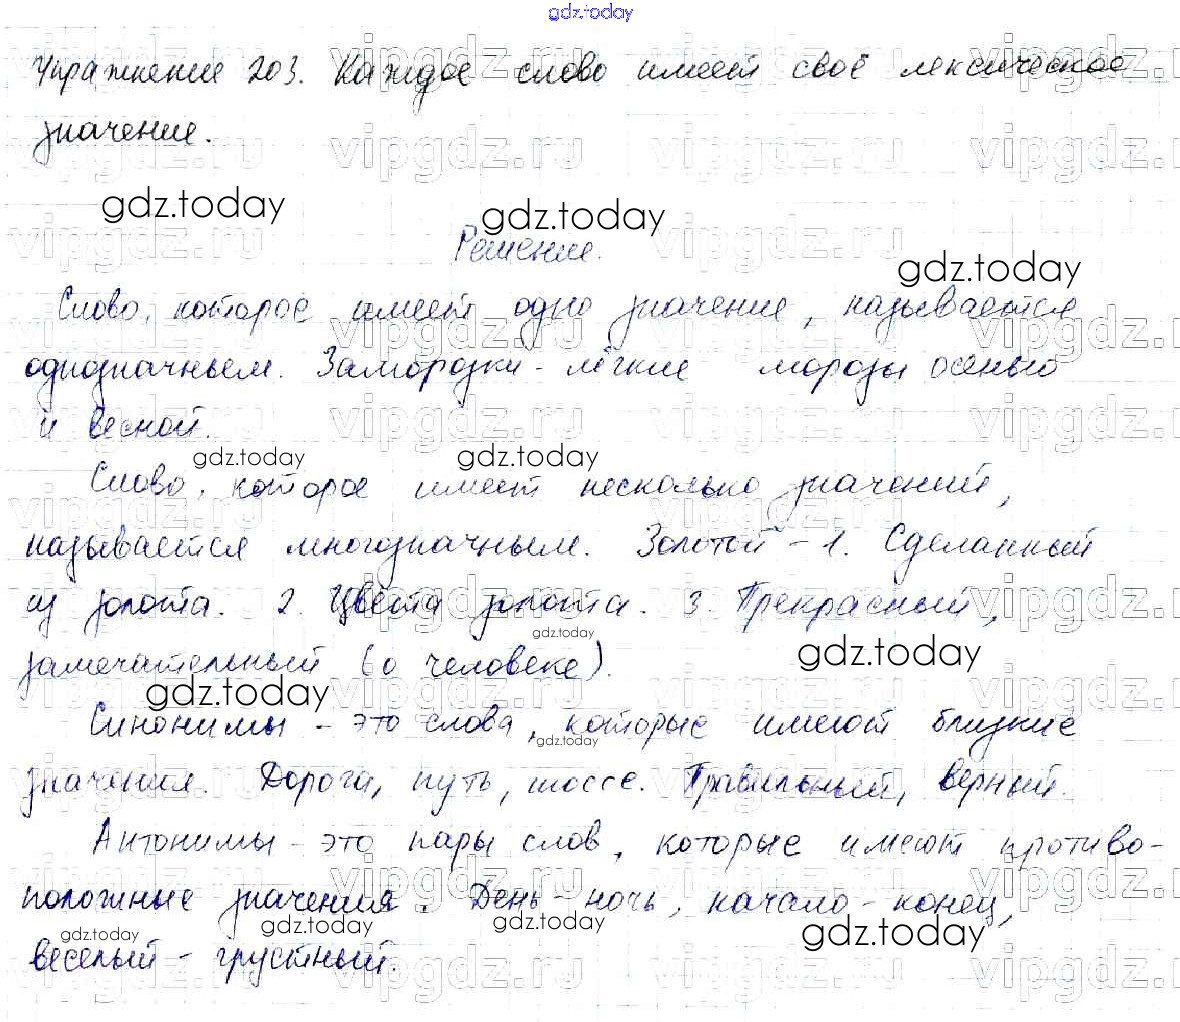 gdz.today
Упражнение 203. Каждое слово имеет своё лексическое
значение.
gdz.today gdz.today
Решение.
gdz.today
Слово, которое имеет одно значение, называется
однозначным. Заморозки - лёгкие морозы осенью
и весной.
gdz.today gdz.today
Слово, которое имеет несколько значений,
называется многозначным. Золотой - 1. Сделанный
из золота. 2. Цвета золота. 3. Прекрасный,
gdz.today
замечательный (о человеке).
gdz.today gdz.today
Синонимы - это слова, которые имеют близкие
gdz.today
значения. Дорога, путь, шоссе. Правильный, верный.
Антонимы - это пары слов, которые имеют противо-
положные значения. День - ночь, начало - конец,
gdz.today gdz.today gdz.today
веселый - грустный.